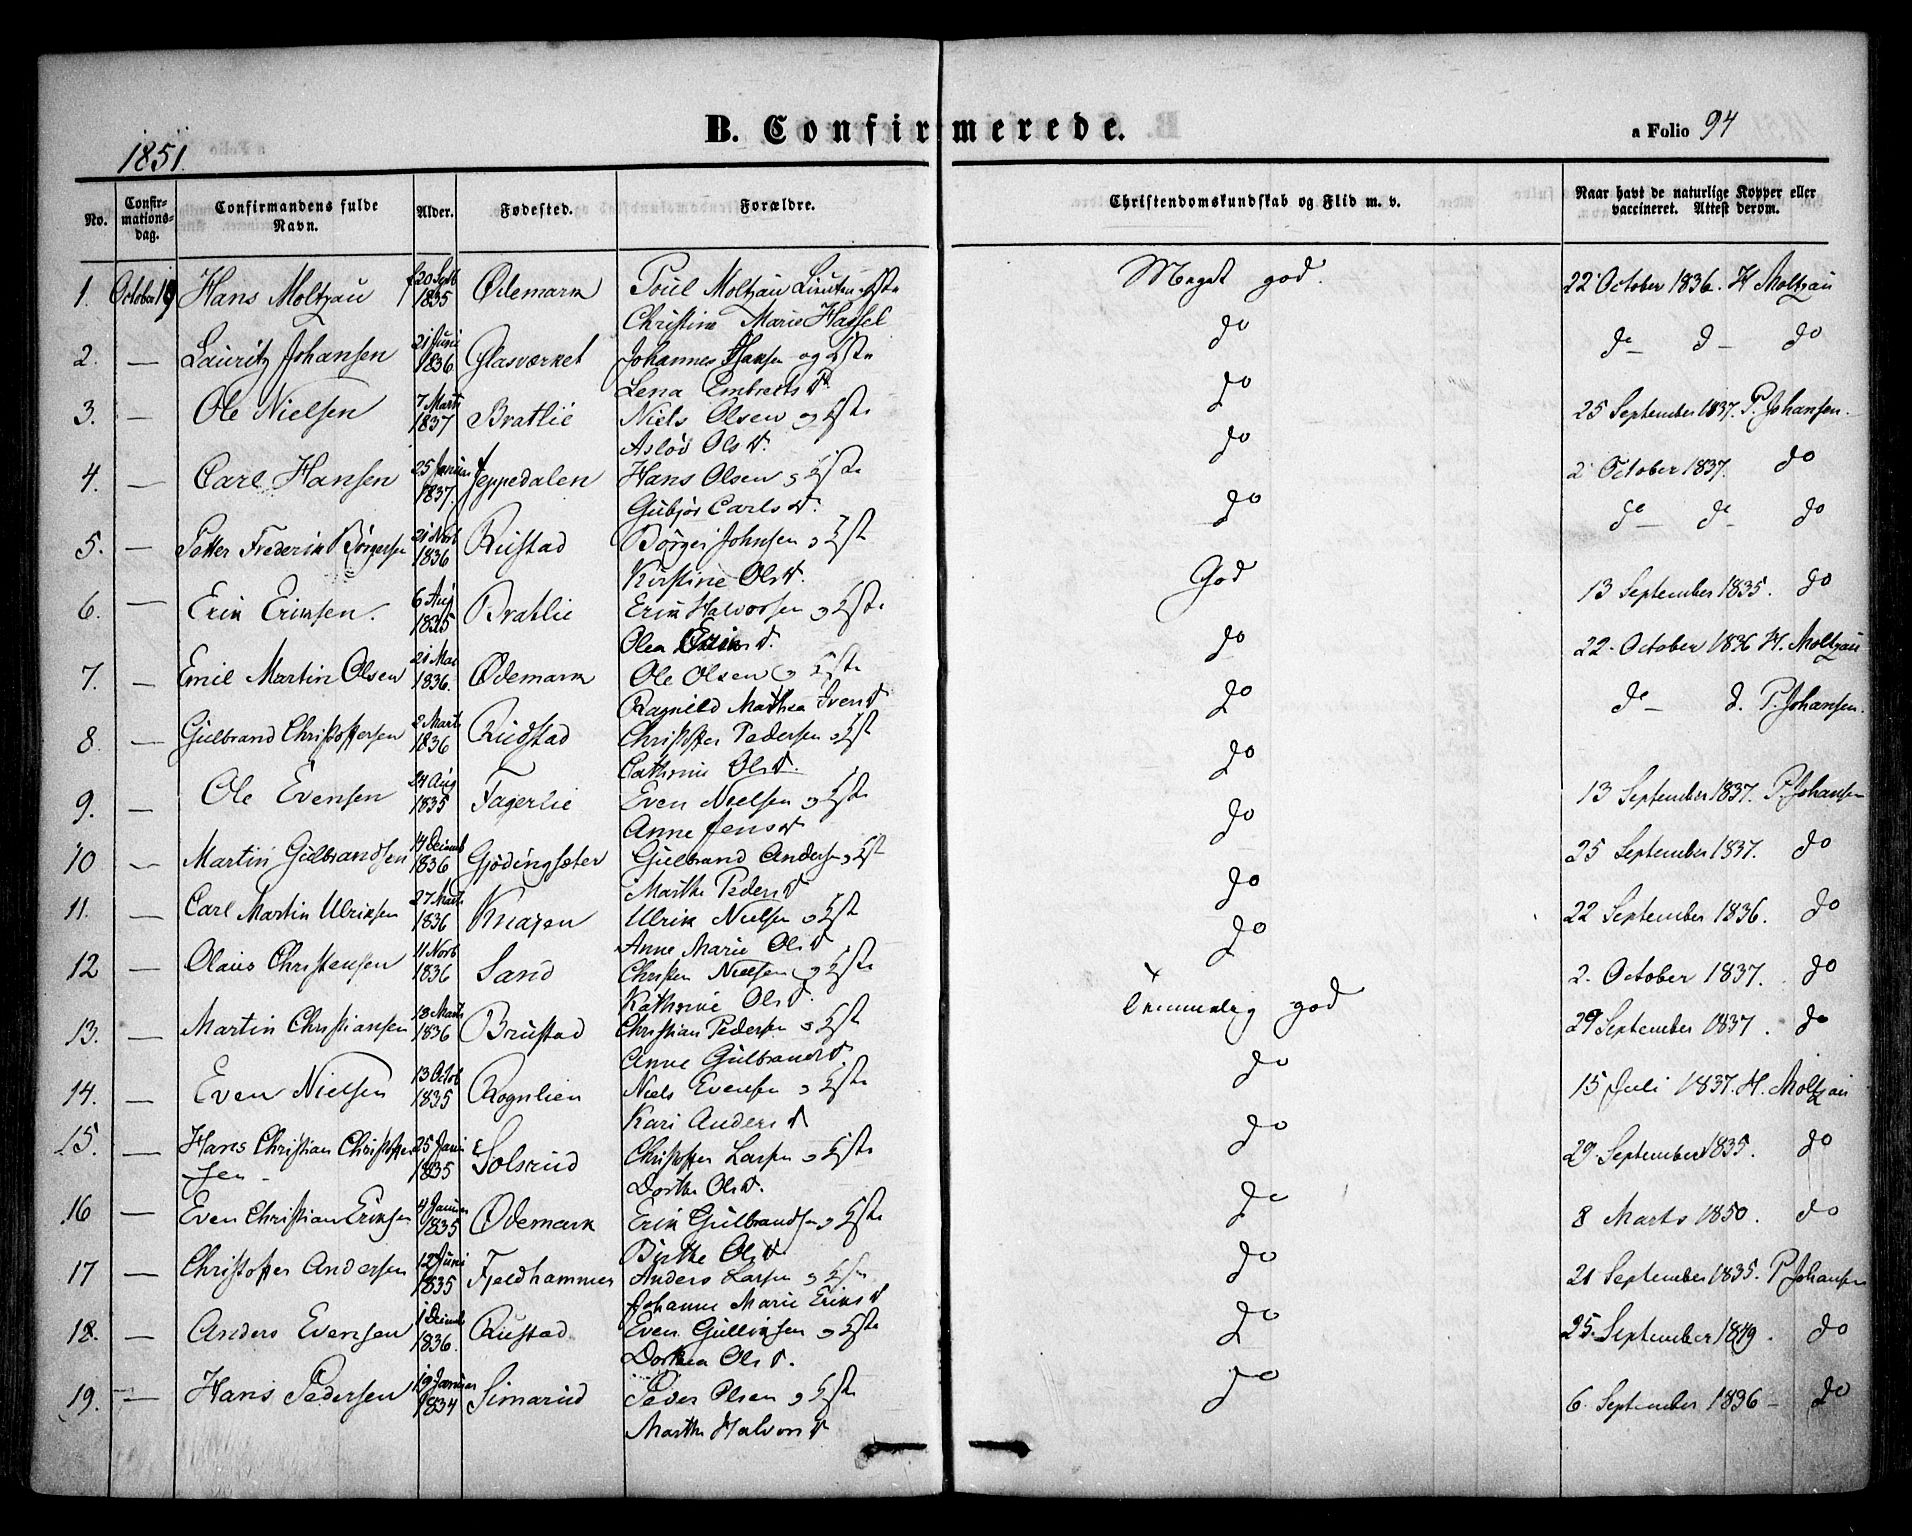 B. Confirmerede.
a Folio 94
1851.
No.
Confirmationsdag.
Confirmandens fulde Navn.
Alder.
Fødested.
Forældre.
Christendomskundskab og Flid m. v.
Naar havt de naturlige Kopper eller vaccineret. Attest derom.
1. October 19 Hans Moltzau f 20 Septb 1835 Ødemark Poul Moltzau Lieuten Meget god. 22 October 1836. H Moltzau
Christine Marie Hassel
2. — Lauritz Johansen 21 Juni 1836 Glasværket Johannes Hansen og Hstr do do — d — do
Lena Embrets D.
3. — Ole Nielsen 7 Marts 1837 Bratlie Niels Olsen og Hstr do 25 September 1837. P. Johansen.
Asløð Ols D.
4. — Carl Hansen 25 Januar 1837. Jeppedalen Hans Olsen og Hst do 2 October 1837. do
Gubjør Carls D.
5. — Petter Frederik Børgersen 21 Novb 1836 Rustad Børger Johnsen og Hst do do — do — do
Kirstine Ols D.
6. — Erik Eriksen. 6 Aug 1835 Bratlie Erik Halvorsen og Hstr God 13 September 1835. do
Olea D.
7. — Emil Martin Olsen 21 Mai 1836. Ødemark Ole Olsen og Hstr do 22 October 1836 H. Moltzau
Ragnild Mathea Ivers D
8. — Gulbrand Christoffersen 2 Marts 1836 Rudstad Christoffer Pedersen og Hst do do — d. P. Johansen.
Cathrine Ols D.
9. — Ole Evensen 24 Aug 1835 Fagerlie Even Nielsen og Hstr do 13 September 1837. P. Johansen
Anne Jens D
10 — Martin Gulbrandsen 14 Decemb 1836 Gjødingsæter Gulbrand Andersen og Hst do 25 September 1837. do
Marthe Peders D
11. — Carl Martin Ulriksen 27 Marts 1836 Knapen Ulrik Nielsen og Hst do 22 September 1836. do
Anne Marie Ols D
12 — Olaus Christensen 11 Novb 1836 Sand Christen Nielsen og Hstr do 2. October 1837. do
Kathrine Ols D.
13. — Martin Christiansen 18 Marts 1836 Brustad Christian Pedersen og Hst Temmelig god 29 September 1837. do
Anne Gulbrands D.
14. — Even Nielsen 13 Octob 1835 Rognlien Niels Evensen og Hstr do 15 Juli 1837. H. Moltzau
Kari Anders D
15. — Hans Christian Christoffersen 25 Jani 1835 Solsrud Christoffer Larsen og Hstr do 29 September 1835. do
Dorthe Ols D.
16 — Even Christian Eriksen 4 Januar 1835 Ødemark Erik Gulbrandsen og Hstr do 8 Marts 1850. do
Birthe Ols D
17 — Christoffer Andersen 12 Juni 1835 Fjeldhammer Anders Larsen og Hstr do 21 September 1835. P. Johansen
Johanne Marie Eriks D
18. — Anders Evensen 1 Decemb 1836. Rustad Even Gulliksen og Hstr do 25 September 1849. do
Dorthea Ols D.
19. — Hans Pedersen 19 Januar 1834 Simarud Peder Olsen og Hstr do 6 September 1836 — do
Marthe Halvors D